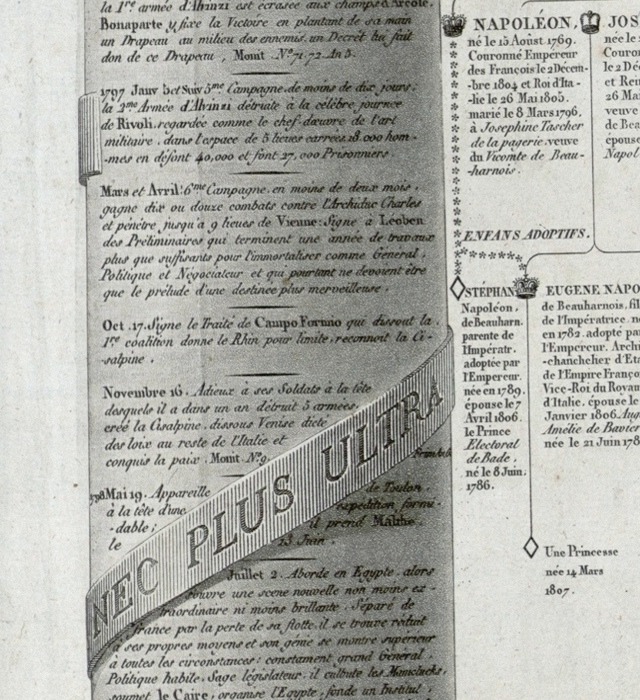 la 1re armée d'Alvinzi est écrasée aux champs d'Arcole.
Bonaparte y fixe la Victoire en plantant de sa main
un Drapeau au milieu des ennemis, un Decret lui fait
don de ce Drapeau, Monit. No. 71. 72. An 5.
1797 Janv 5me Campagne, de moins de dix jours,
la 2me Armée d'Alvinzi détruite à la célèbre journée
de Rivoli, regardée comme le chef-dœuvre de l'art
militaire, dans l'espace de 5 lieues carrées, 28.000 hom-
-mes en défont 40,000 et font 27,000 Prisonniers.
Mars et Avril: 6me Campagne, en moins de deux mois,
gagne dix ou douze combats contre l'Archiduc Charles
et pénètre jusqu'à 9 lieues de Vienne: Signe à Léoben
des Préliminaires qui terminent une année de travaux
plus que suffisants pour l'immortaliser comme Général,
Politique et Négociateur et qui pourtant ne devoient être
que le prélude d'une destinée plus merveilleuse.
Oct. 17. Signe le Traité de Campo Formio qui dissout la
1re coalition donne le Rhin pour limite, reconnoit la Ci-
-salpine.
Novembre 16. Adieux à ses Soldats à la tête
desquels il a dans un an détruit 5 armées,
créé la Cisalpine, dissous Venise dicté
des loix au reste de l'Italie et
conquis la paix. Monit. No. 9.
1798 Mai 19. Appareille de Toulon
à la tête d'une expédition formi-
-dable; il prend Malthe
le 13 Juin.
NEC PLUS ULTRA
Juillet 2. Aborde en Egypte, alors
s'ouvre une scène nouvelle non moins ex-
traordinaire ni moins brillante. Séparé de
France par la perte de sa flotte, il se trouve réduit
à ses propres moyens et son génie se montre supérieur
à toutes les circonstances: constament grand Général,
Politique habile, Sage législateur, il culbute les Mamelucks,
soumet le Caire, organise l'Egypte, fonde un Institut
NAPOLÉON,
né le 15 Aoust 1769.
Couronné Empereur
des François le 2 Décem-
-bre 1804 et Roi d'Ita-
-lie le 26 Mai 1805.
marié le 8 Mars 1796.
à Josephine Tascher
de la pagerie, veuve
du Vicomte de Beau-
-harnois.
JOS
née le
Couron
le 2 Dé
et Rein
26 Mai
veuve
de Beau
épouse
Napol
ENFANS ADOPTIFS.
STÉPHAN
Napoléon,
de Beauharn.
parente de
l'Impératr.
adoptée par
l'Empereur.
née en 1789.
épouse le 7
Avril 1806.
le Prince
Electoral
de Bade,
né le 8 Juin.
1786.
EUGENE NAPO
de Beauharnois, fil
de l'Impératrice, né
en 1782. adopté par
l'Empereur. Archi
-chanchelier d'Et
de l'Empire Franço
Vice-Roi du Royau
d'Italie, épouse le
Janvier 1806. Aug
Amélie de Bavier
née le 21 Juin 178
Une Princesse
née 14 Mars
1807.